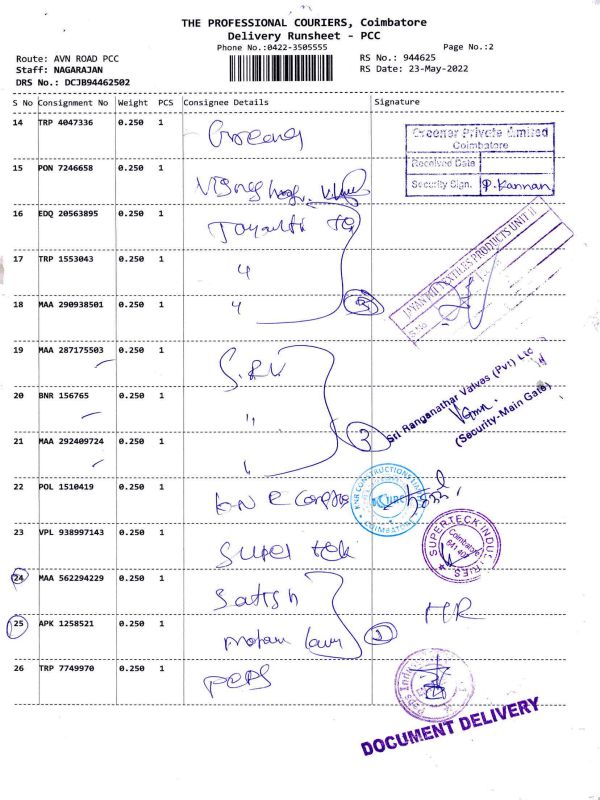 THE PROFESSIONAL COURIERS, Coimbatore
Delivery Runsheet - PCC
Phone No.:0422-3505555
Page No.:2
Route: AVN ROAD PCC
RS No.: 944625
Staff: NAGARAJAN
RS Date: 23-May-2022
DRS No.: DCJB94462502
S No Consignment No Weight PCS Consignee Details Signature
14 TRP 4047336 0.250 1
Greener Private Limited
Coimbatore
Received Date
Security Sign. P. Kannan
15 PON 7246658 0.250 1
16 EDQ 20563895 0.250 1
JAYANTHI TEXTILES PRODUCTS UNIT II
S.No
17 TRP 1553043 0.250 1 "
18 MAA 290938501 0.250 1 " 3
19 MAA 287175503 0.250 1 S.R.V
Sri Ranganathar Valves (Pvt) Ltd
(Security-Main Gate)
20 BNR 156765 0.250 1 "
21 MAA 292409724 0.250 1 " 3
22 POL 1510419 0.250 1
KNR CONSTRUCTIONS LIMITED
COIMBATORE
23 VPL 938997143 0.250 1 Super tek
SUPERTECK INDUSTRIES
Coimbatore
24 MAA 562294229 0.250 1 Satish
HR
25 APK 1258521 0.250 1 2
26 TRP 7749970 0.250 1 PEPS
DOCUMENT DELIVERY